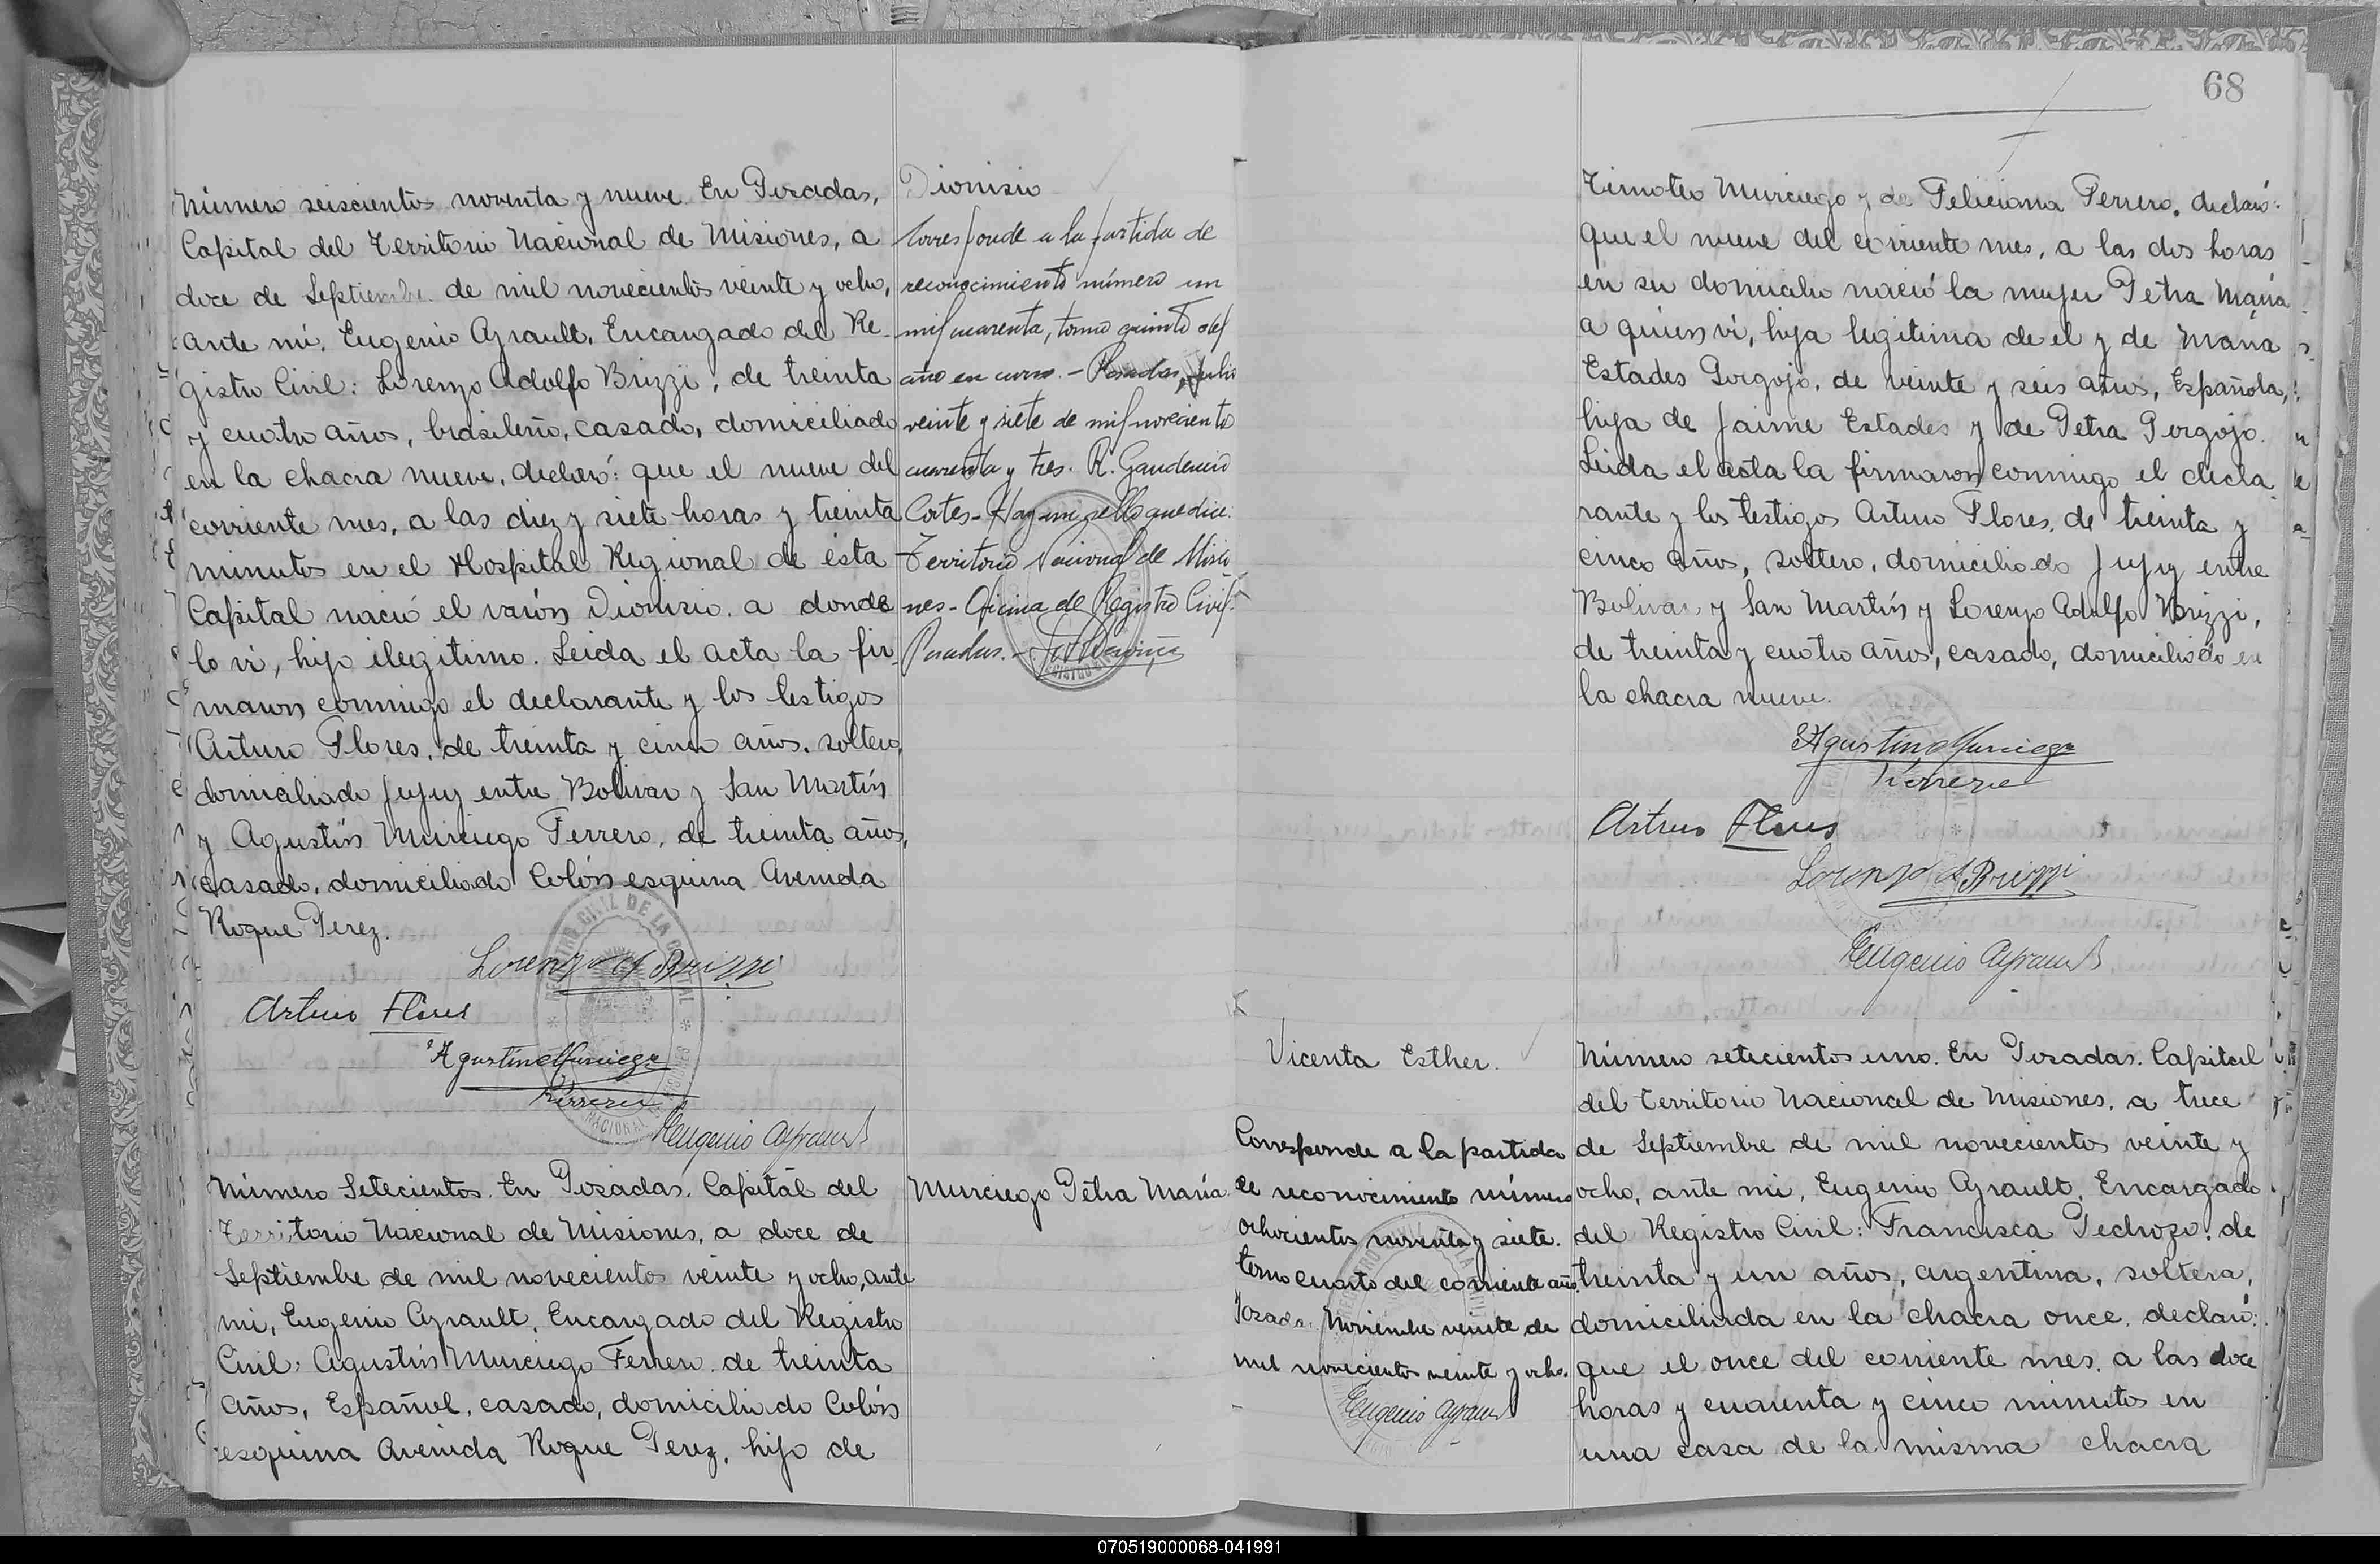 Número seiscientos noventa y nueve. En Posadas,
Capital del Territorio Nacional de Misiones, a
doce de Septiembre de mil novecientos veinte y ocho,
ante mi, Eugenio Ayrault, Encargado del Re-
gistro Civil: Lorenzo Adolfo Brizzi, de treinta
y cuatro años, brasileño, casado, domiciliado
en la chacra nueve, declaró: que el nueve del
corriente mes, a las diez y siete horas y treinta
minutos en el Hospital Regional de ésta
Capital nació el varón Dionisio. a donde
lo vi, hijo ilegitimo. Leida el acta la fir
maron conmigo el declarante y los testigos
Arturo Flores, de treinta y cinco años, soltero,
domiciliado Jujuy entre Bolivar y San Martín
y Agustín Murciego Ferrero, de treinta años,
casado, domiciliado Colón esquina Avenida
Roque Perez.
Lorenzo A Brizzi
Arturo Flores
Agustin Murciego
Ferrero
Eugenio Ayrault
REGISTRO CIVIL DE LA CAPITAL
NACIONAL
Dionisio
Corresponde a la partida de
reconocimiento número un
mil cuarenta, tomo quinto del
año en curso. - Posadas, Julio
veinte y siete de mil novecientos
cuarenta y tres. R. Gaudencio
Cortes - Hay un sello que dice:
Territorio Nacional de Misio
nes - Oficina de Registro Civil-
Posadas. -
Número Setecientos. En Posadas, Capital del
Territorio Nacional de Misiones, a doce de
Septiembre de mil novecientos veinte y ocho, ante
mi, Eugenio Ayrault, Encargado del Registro
Civil: Agustín Murciego Ferrero, de treinta
años, Español, casado, domiciliado Colón
esquina Avenida Roque Perez, hijo de
Murciego Petra María
68
Timoteo Murciego y de Feliciana Ferrero, declaró:
que el nueve del corriente mes, a las dos horas
en su domicilio nació la mujer Petra María
a quien vi, hija legitima de el y de María
Estades Gorgojo, de veinte y seis años, Española,
hija de Jaime Estades y de Petra Gorgojo.
Leida el acta la firmaron conmigo el decla
rante y los testigos Arturo Flores, de treinta y
cinco años, soltero, domiciliado Jujuy entre
Bolivar y San Martín y Lorenzo Adolfo Brizzi,
de treinta y cuatro años, casado, domiciliado en
la chacra nueve.
Agustin Murciego
Ferrero
Arturo Flores
Lorenzo A Brizzi
Eugenio Ayrault
Vicenta Esther.
Corresponde a la partida
de reconocimiento número
ochocientos noventa y siete.
tomo cuarto del corriente año.
Posadas, Noviembre veinte de
mil novecientos veinte y ocho.
Eugenio Ayrault
Número setecientos uno. En Posadas, Capital
del Territorio Nacional de Misiones, a trece
de Septiembre de mil novecientos veinte y
ocho, ante mi, Eugenio Ayrault, Encargado
del Registro Civil: Francisca Pedrozo, de
treinta y un años, argentina, soltera,
domiciliada en la chacra once, declaró:
que el once del corriente mes, a las doce
horas y cuarenta y cinco minutos en
una casa de la misma chacra
070519000068-041991